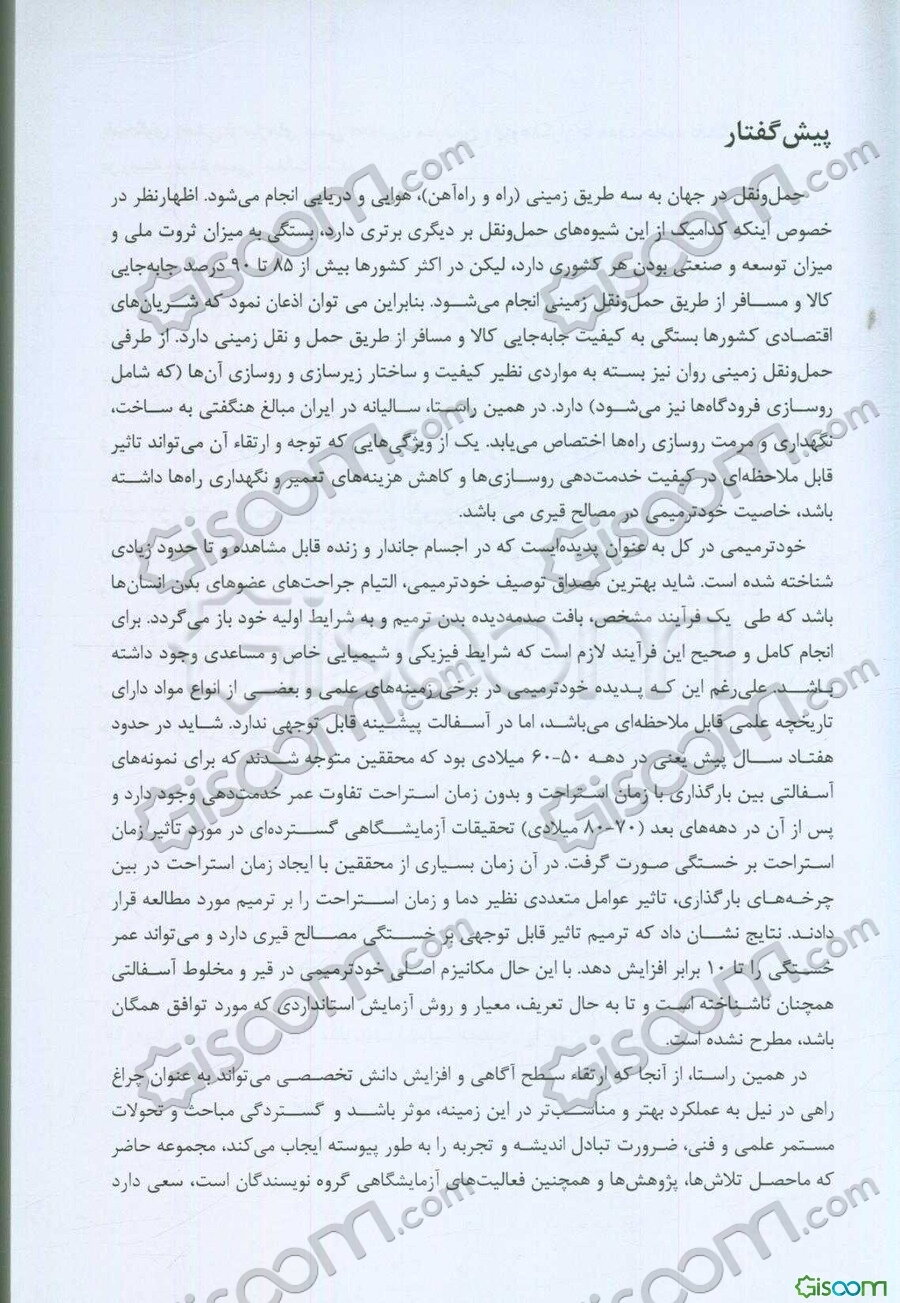 پیش‌گفتار
حمل‌ونقل در جهان به سه طریق زمینی (راه و راه‌آهن)، هوایی و دریایی انجام می‌شود. اظهارنظر در
خصوص اینکه کدامیک از این شیوه‌های حمل‌ونقل بر دیگری برتری دارد، بستگی به میزان ثروت ملی و
میزان توسعه و صنعتی بودن هر کشوری دارد، لیکن در اکثر کشورها بیش از ۸۵ تا ۹۰ درصد جابه‌جایی
کالا و مسافر از طریق حمل‌ونقل زمینی انجام می‌شود. بنابراین می توان اذعان نمود که شریان‌های
اقتصادی کشورها بستگی به کیفیت جابه‌جایی کالا و مسافر از طریق حمل و نقل زمینی دارد. از طرفی
حمل‌ونقل زمینی روان نیز بسته به مواردی نظیر کیفیت و ساختار زیرسازی و روسازی آن‌ها (که شامل
روسازی فرودگاه‌ها نیز می‌شود) دارد. در همین راستا، سالیانه در ایران مبالغ هنگفتی به ساخت،
نگهداری و مرمت روسازی راه‌ها اختصاص می‌یابد. یک از ویژگی‌هایی که توجه و ارتقاء آن می‌تواند تاثیر
قابل ملاحظه‌ای در کیفیت خدمت‌دهی روسازی‌ها و کاهش هزینه‌های تعمیر و نگهداری راه‌ها داشته
باشد، خاصیت خودترمیمی در مصالح قیری می باشد.
خودترمیمی در کل به عنوان پدیده‌ایست که در اجسام جاندار و زنده قابل مشاهده و تا حدود زیادی
شناخته شده است. شاید بهترین مصداق توصیف خودترمیمی، التیام جراحت‌های عضوهای بدن انسان‌ها
باشد که طی یک فرآیند مشخص، بافت صدمه‌دیده بدن ترمیم و به شرایط اولیه خود باز می‌گردد. برای
انجام کامل و صحیح این فرآیند لازم است که شرایط فیزیکی و شیمیایی خاص و مساعدی وجود داشته
باشد. علی‌رغم این که پدیده خودترمیمی در برخی زمینه‌های علمی و بعضی از انواع مواد دارای
تاریخچه علمی قابل ملاحظه‌ای می‌باشد، اما در آسفالت پیشینه قابل توجهی ندارد. شاید در حدود
هفتاد سال پیش یعنی در دهه ۵۰-۶۰ میلادی بود که محققین متوجه شدند که برای نمونه‌های
آسفالتی بین بارگذاری با زمان استراحت و بدون زمان استراحت تفاوت عمر خدمت‌دهی وجود دارد و
پس از آن در دهه‌های بعد (۷۰-۸۰ میلادی) تحقیقات آزمایشگاهی گسترده‌ای در مورد تاثیر زمان
استراحت بر خستگی صورت گرفت. در آن زمان بسیاری از محققین با ایجاد زمان استراحت در بین
چرخه‌های بارگذاری، تاثیر عوامل متعددی نظیر دما و زمان استراحت را بر ترمیم مورد مطالعه قرار
دادند. نتایج نشان داد که ترمیم تاثیر قابل توجهی بر خستگی مصالح قیری دارد و می‌تواند عمر
خستگی را تا ۱۰ برابر افزایش دهد. با این حال مکانیزم اصلی خودترمیمی در قیر و مخلوط آسفالتی
همچنان ناشناخته است و تا به حال تعریف، معیار و روش آزمایش استانداردی که مورد توافق همگان
باشد، مطرح نشده است.
در همین راستا، از آنجا که ارتقاء سطح آگاهی و افزایش دانش تخصصی می‌تواند به عنوان چراغ
راهی در نیل به عملکرد بهتر و مناسب‌تر در این زمینه، موثر باشد و گستردگی مباحث و تحولات
مستمر علمی و فنی، ضرورت تبادل اندیشه و تجربه را به طور پیوسته ایجاب می‌کند، مجموعه حاضر
که ماحصل تلاش‌ها، پژوهش‌ها و همچنین فعالیت‌های آزمایشگاهی گروه نویسندگان است، سعی دارد
Giscom.com
Giscom